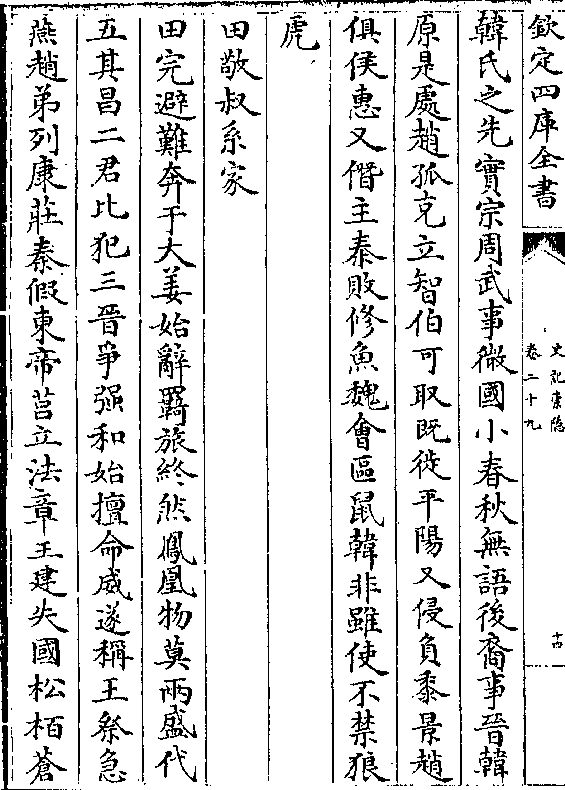 欽定四庫全書
史記索隱
卷二十九
十四
韓氏之先實宗周武事微國小春秋無語後裔事晉韓
原是處趙孤克立智伯可取既徙平陽又侵負黍景趙
俱侯惠又僭主秦敗修魚魏會區鼠韓非雖使不禁狼
虎
田敬叔系家
田完避難奔于大姜始辭羇旅終然鳳凰物莫兩盛代
五其昌二君比犯三晉爭強和始擅命威遂稱王祭急
燕趙弟列康莊秦假東帝莒立法章王建失國松栢蒼